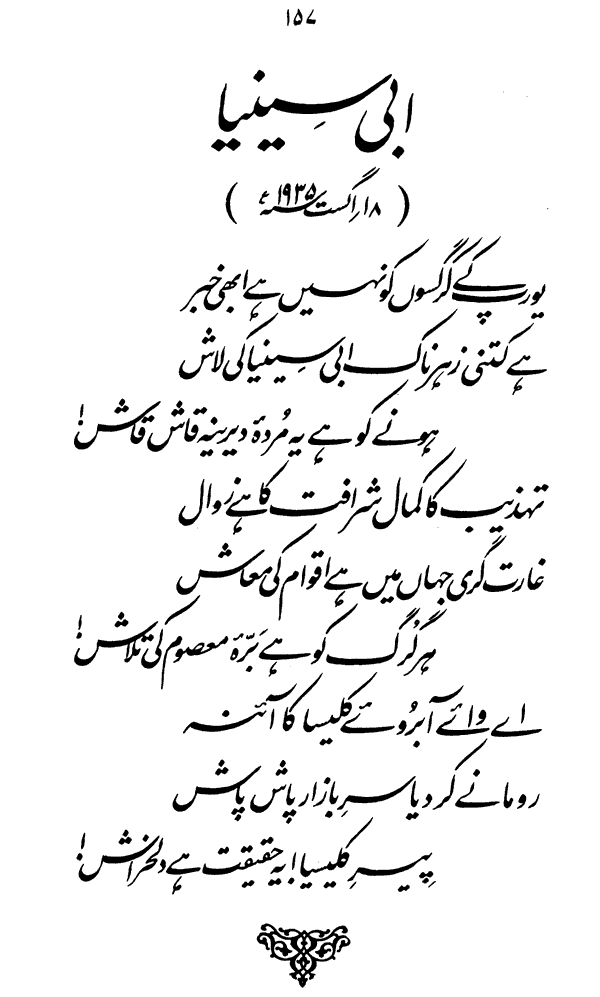 ۱۵۷
ابی سینیا
(۱۸؍اگست ۱۹۳۵ء)
یورپ کے کرگسوں کو نہیں ہے ابھی خبر
ہے کتنی زہرناک ابی سینیا کی لاش
ہونے کو ہے یہ مُردۂ دیرینہ قاش قاش!
تہذیب کا کمال شرافت کا ہے زوال
غارت گری جہاں میں ہے اقوام کی معاش
ہر گُرگ کو ہے بَرّۂ معصوم کی تلاش!
اے وائے آبرُوئے کلیسا کا آئنہ
روما نے کر دیا سرِ بازار پاش پاش
پیرِ کلیسیا! یہ حقیقت ہے دلخراش!